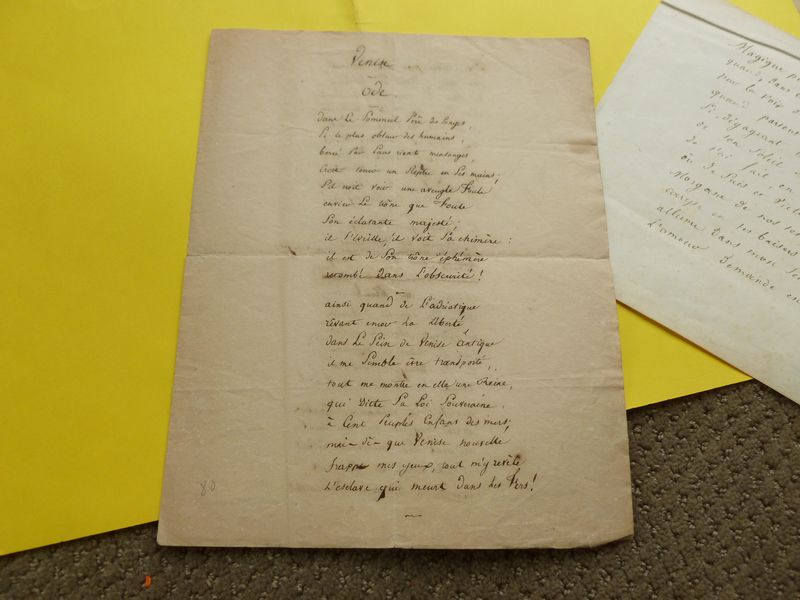 Venise
Ode
dans Le Sommeil Père des songes,
Si le plus obscur des humains,
bercé Par Leurs riant mensonges,
Croit tenir un Sceptre en Ses mains;
S'il croit voir une aveugle foule
envier Le trône que foule
Son éclatante majesté;
il S'éveille, il voit Sa chimère:
il est de Son trône éphémère
retombé dans L'obscurité!
ainsi quand de L'adriatique
rêvant encor La Liberté,
dans Le Sein de Venise antique
il me Semble être transporté,
tout me montre en elle une Reine,
qui Dicte Sa Loi Souveraine
à Cent Peuples Enfans des mers;
mai-di-que Venise nouvelle
frappe mes yeux, tout m'y révèle
L'esclave qui meurt dans Les fers!
80
Magique p
quand, dans
pour la voix d
quand partout
Se dégageant
de ton Soleil
Je t'ai fait en
où Je Suis
Morgane de nos
en tes baisers
allume dans mon Se
L'amour demande en